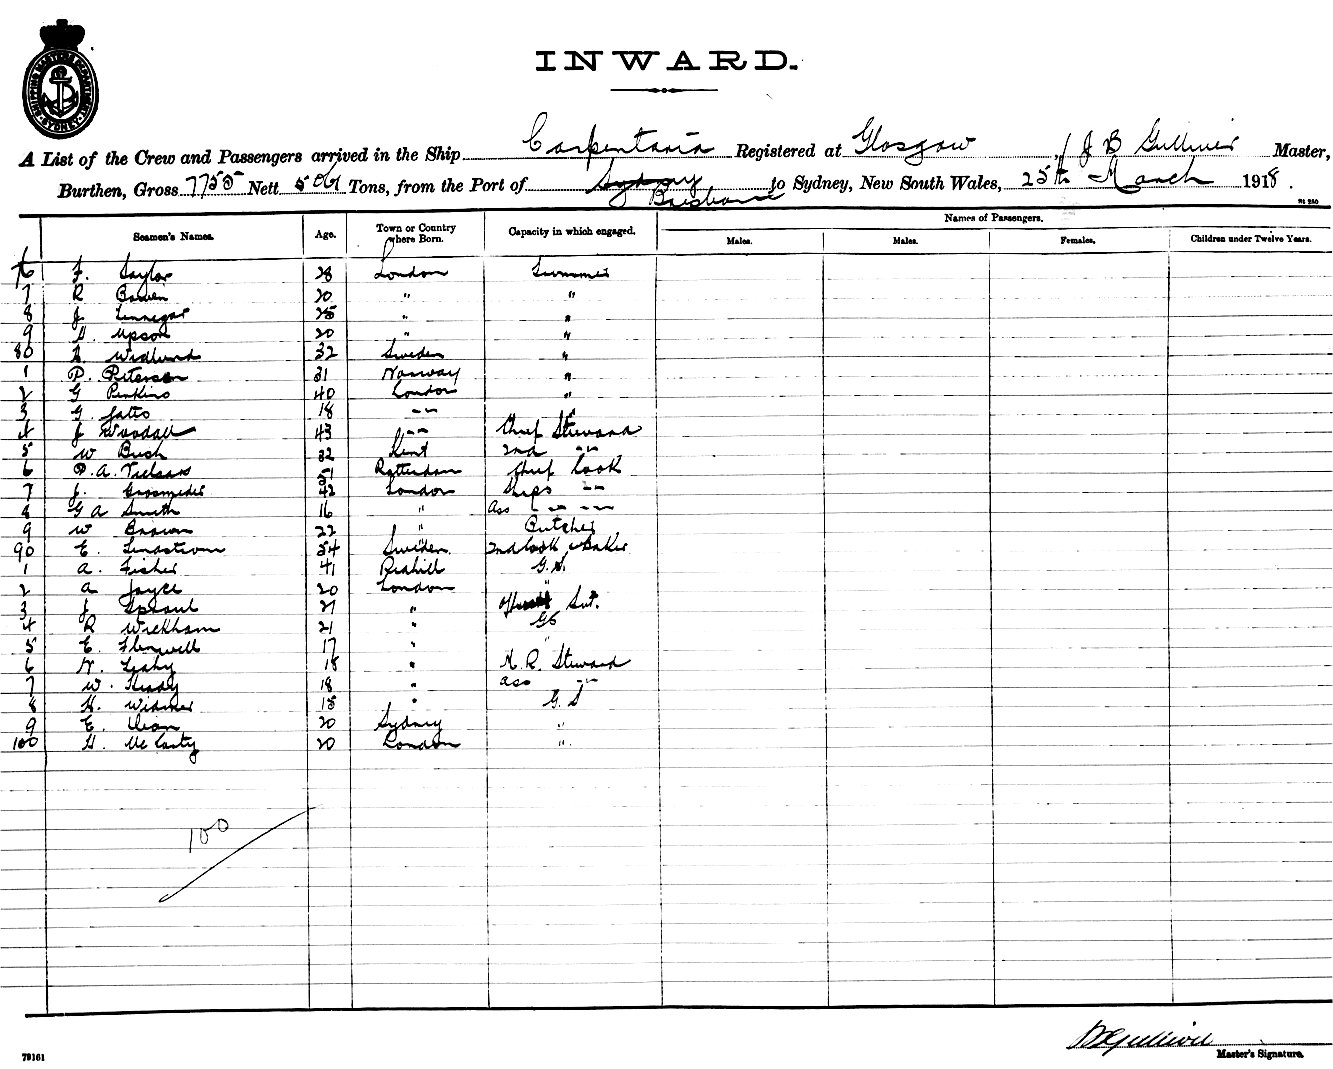 SHIPPING MASTER'S DEPARTMENT SYDNEY
INWARD.
A List of the Crew and Passengers arrived in the Ship Carpentaria Registered at Glasgow, J B Gulliver Master,
Burthen, Gross 7755 Nett Tons, from the Port of Sydney Brisbane to Sydney, New South Wales, 25th March 1918.
Names of Passengers.
Seamen's Names. Age. Town or Country where Born. Capacity in which engaged. Males. Males. Females. Children under Twelve Years.
76 F. Taylor 28 London Trimmer
7 R Bowen 20 " "
8 J. Linnegar 25 " "
9 H. Upson 20 " "
80 Widlund 32 Sweden "
1 P. Petersen 31 Norway "
2 G Perkins 40 London "
3 G Yates 18 -"- "
4 J Woodall 43 -"- Chief Steward
5 W Bush 32 Kent 2nd -"-
6 P. A. 51 Rotterdam Chief Cook
7 J. 42 London Ships -"-
8 G A Smith 16 " Ass -"- -"-
9 W Brown 22 " Butcher
90 E. Lindstrom 34 Sweden 2nd Cook & Baker
1 A. Fisher 41 Redhill G.S.
2 A Joyce 20 London "
3 J Sproul 21 " Sut.
4 R Wickham 21 " GS
5 E. Flexwell 17 " "
6 Leahy 18 " M. R. Steward
7 W. 18 " ass -"-
8 H. Widmer 18 " G. S
9 E. Dean 20 Sydney "
100 H. McCarty 20 London "
100
Master's Signature.
79161